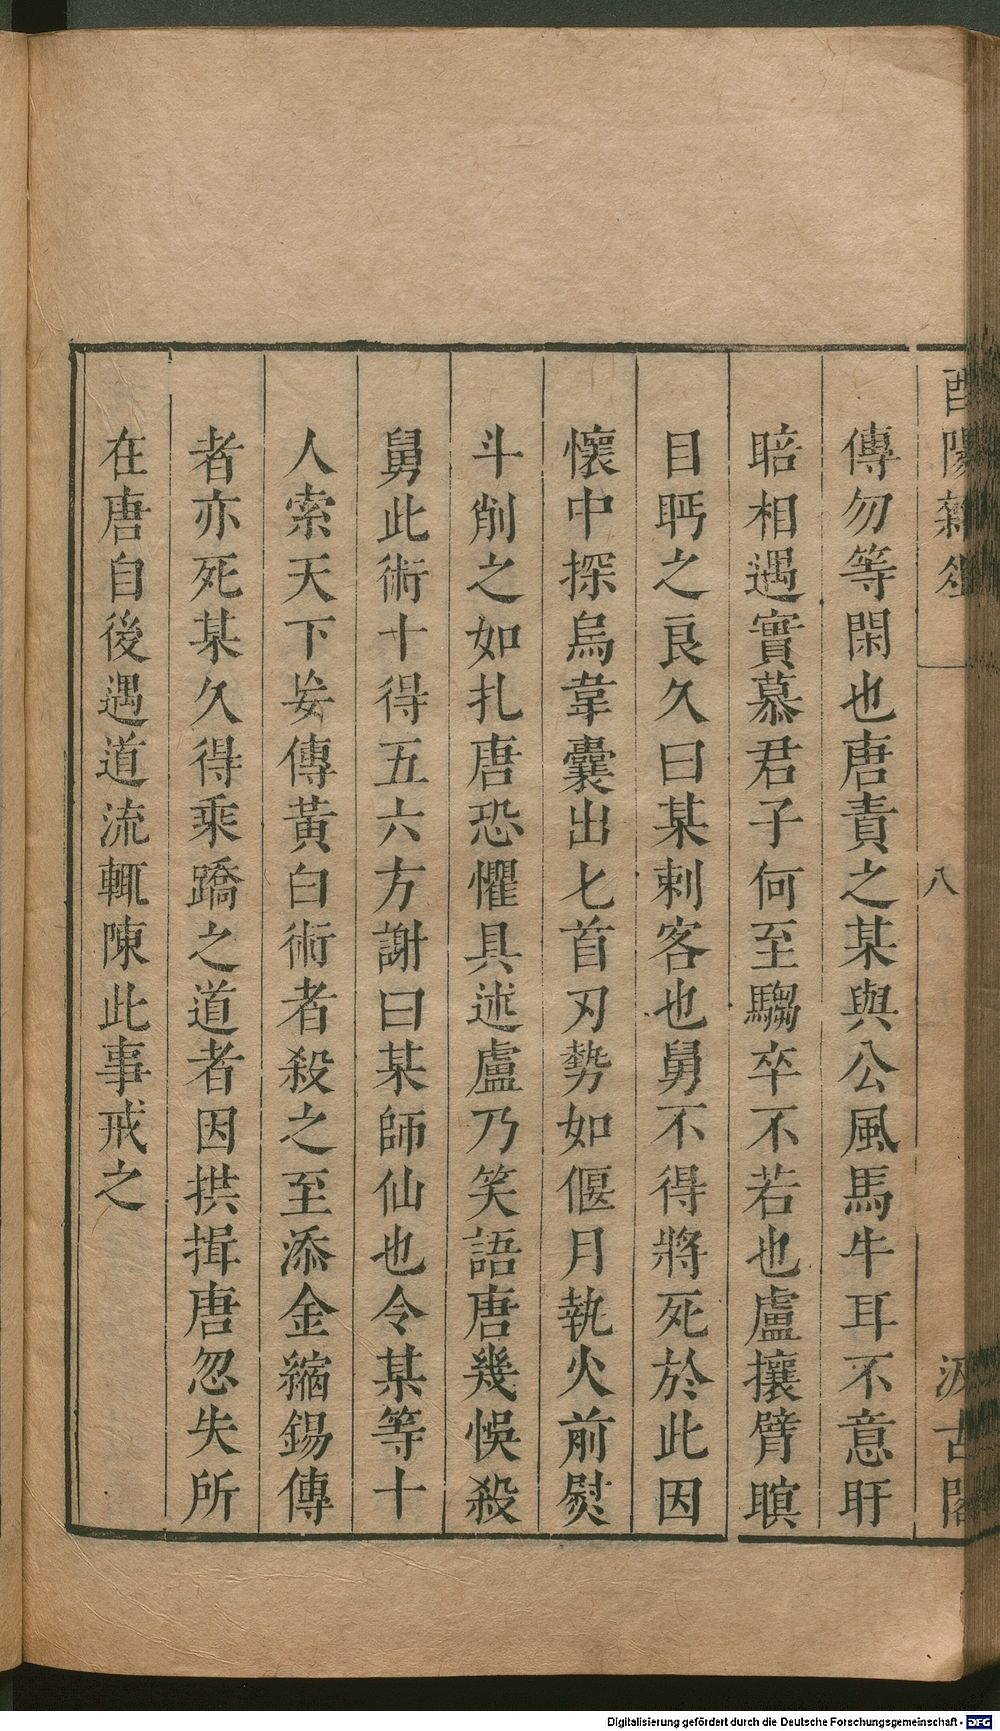 酉陽雜俎
八
汲古閣
傳勿等閑也唐責之某與公風馬牛耳不意盱
𥇒相遇實慕君子何至騶卒不若也盧攘臂瞋
目眄之良久曰某刺客也舅不得將死於此因
懷中探烏韋囊出匕首刃勢如偃月執火前熨
斗削之如扎唐恐懼具述盧乃笑語唐幾悞殺
舅此術十得五六方謝曰某師仙也令某等十
人索天下妄傳黃白術者殺之至添金縮錫傳
者亦死某久得乘蹻之道者因拱揖唐忽失所
在唐自後遇道流輒陳此事戒之
Digitalisierung gefördert durch die Deutsche Forschungsgemeinschaft - DFG